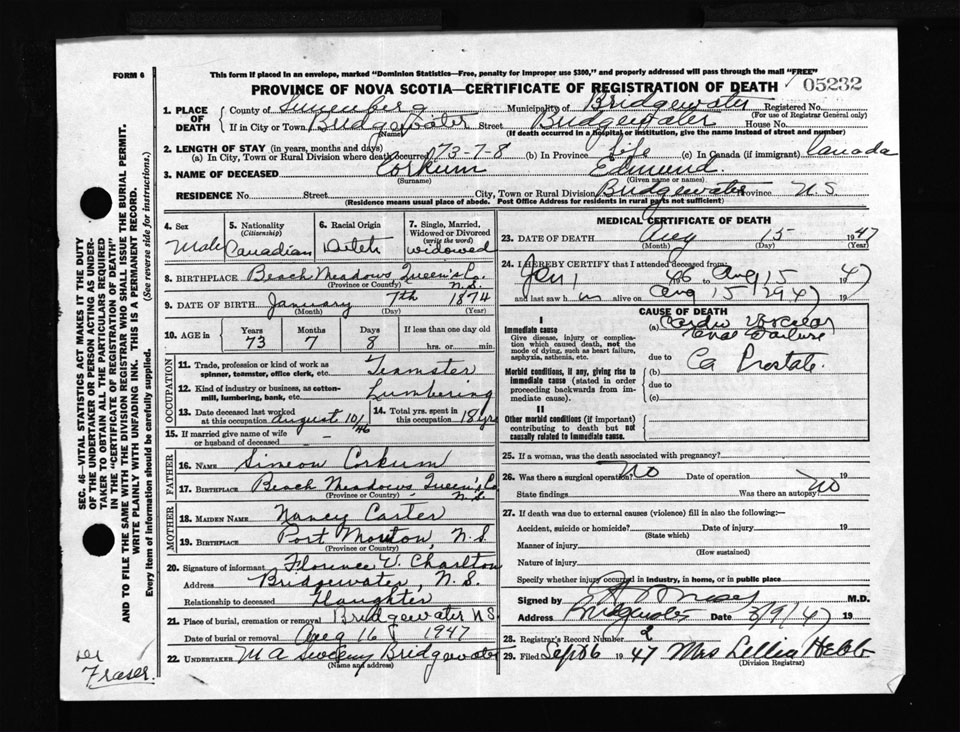 FORM 6
This form if placed in an envelope, marked "Dominion Statistics—Free, penalty for improper use $300," and properly addressed will pass through the mail "FREE"
PROVINCE OF NOVA SCOTIA—CERTIFICATE OF REGISTRATION OF DEATH
05232
1. PLACE OF DEATH
County of Lunenberg Municipality of Bridgewater Registered No.
(For use of Registrar General only)
If in City or Town Bridgewater Street Bridgewater House No.
(Name) (If death occurred in a hospital or institution, give the name instead of street and number)
2. LENGTH OF STAY (in years, months and days)
(a) In City, Town or Rural Division where death occurred 73-7-8 (b) In Province Life (c) In Canada (if immigrant) Canada
3. NAME OF DECEASED Corkum Edmund.
(Surname) (Given name or names)
RESIDENCE No. Street City, Town or Rural Division Bridgewater Province N.S.
(Residence means usual place of abode. Post Office Address for residents in rural parts not sufficient)
4. Sex Male
5. Nationality (Citizenship) Canadian
6. Racial Origin
7. Single, Married, Widowed or Divorced (write the word) widowed
8. BIRTHPLACE Beach Meadows Queen's Co. N.S.
(Province or Country)
9. DATE OF BIRTH January 7th 1874
(Month) (Day) (Year)
10. AGE in Years Months Days If less than one day old
73 7 8 hrs. or min.
OCCUPATION
11. Trade, profession or kind of work as spinner, teamster, office clerk, etc. Teamster
12. Kind of industry or business, as cotton-mill, lumbering, bank, etc. Lumbering
13. Date deceased last worked at this occupation August 10/46
14. Total yrs. spent in this occupation 18 yrs
15. If married give name of wife or husband of deceased –
FATHER
16. NAME Simeon Corkum
17. BIRTHPLACE Beach Meadows Queen's Co N.S.
(Province or Country)
MOTHER
18. MAIDEN NAME Nancy Carter
19. BIRTHPLACE Port Mouton, N.S.
(Province or Country)
20. Signature of informant Florence V. Charlton
Address Bridgewater, N.S.
Relationship to deceased Daughter
21. Place of burial, cremation or removal Bridgewater NS
Date of burial or removal Aug 16 1947
22. UNDERTAKER M A Sweeny Bridgewater
(Name and address)
MEDICAL CERTIFICATE OF DEATH
23. DATE OF DEATH Aug 15 1947
(Month) (Day) (Year)
24. I HEREBY CERTIFY that I attended deceased from
Jan 1 46 Aug 15 47
and last saw him alive on Aug 15 1947 19
CAUSE OF DEATH
I
Immediate cause
Give disease, injury or complication which caused death, not the mode of dying, such as heart failure, asphyxia, asthenia, etc.
(a) Cardio Vascular Renal Failure
due to Ca Prostate.
Morbid conditions, if any, giving rise to immediate cause (stated in order proceeding backwards from immediate cause).
(b)
due to
(c)
II
Other morbid conditions (if important) contributing to death but not causally related to immediate cause.
25. If a woman, was the death associated with pregnancy?
26. Was there a surgical operation? No Date of operation 19
State findings Was there an autopsy? No
27. If death was due to external causes (violence) fill in also the following:—
Accident, suicide or homicide? Date of injury 19
(State which)
Manner of injury
(How sustained)
Nature of injury
Specify whether injury occurred in industry, in home, or in public place
Signed by M.D.
Address Bridgewater Date 3/9/47 19
28. Registrar's Record Number 2
29. Filed Sept 6 1947 Mrs Lellia Hebb
(Division Registrar)
SEC. 46—VITAL STATISTICS ACT MAKES IT THE DUTY OF THE UNDERTAKER OR PERSON ACTING AS UNDERTAKER TO OBTAIN ALL THE PARTICULARS REQUIRED IN THE "CERTIFICATE OF REGISTRATION OF DEATH"
AND TO FILE THE SAME WITH THE DIVISION REGISTRAR WHO SHALL ISSUE THE BURIAL PERMIT.
WRITE PLAINLY WITH UNFADING INK. THIS IS A PERMANENT RECORD.
Every item of information should be carefully supplied. (See reverse side for instructions.)
Fraser.